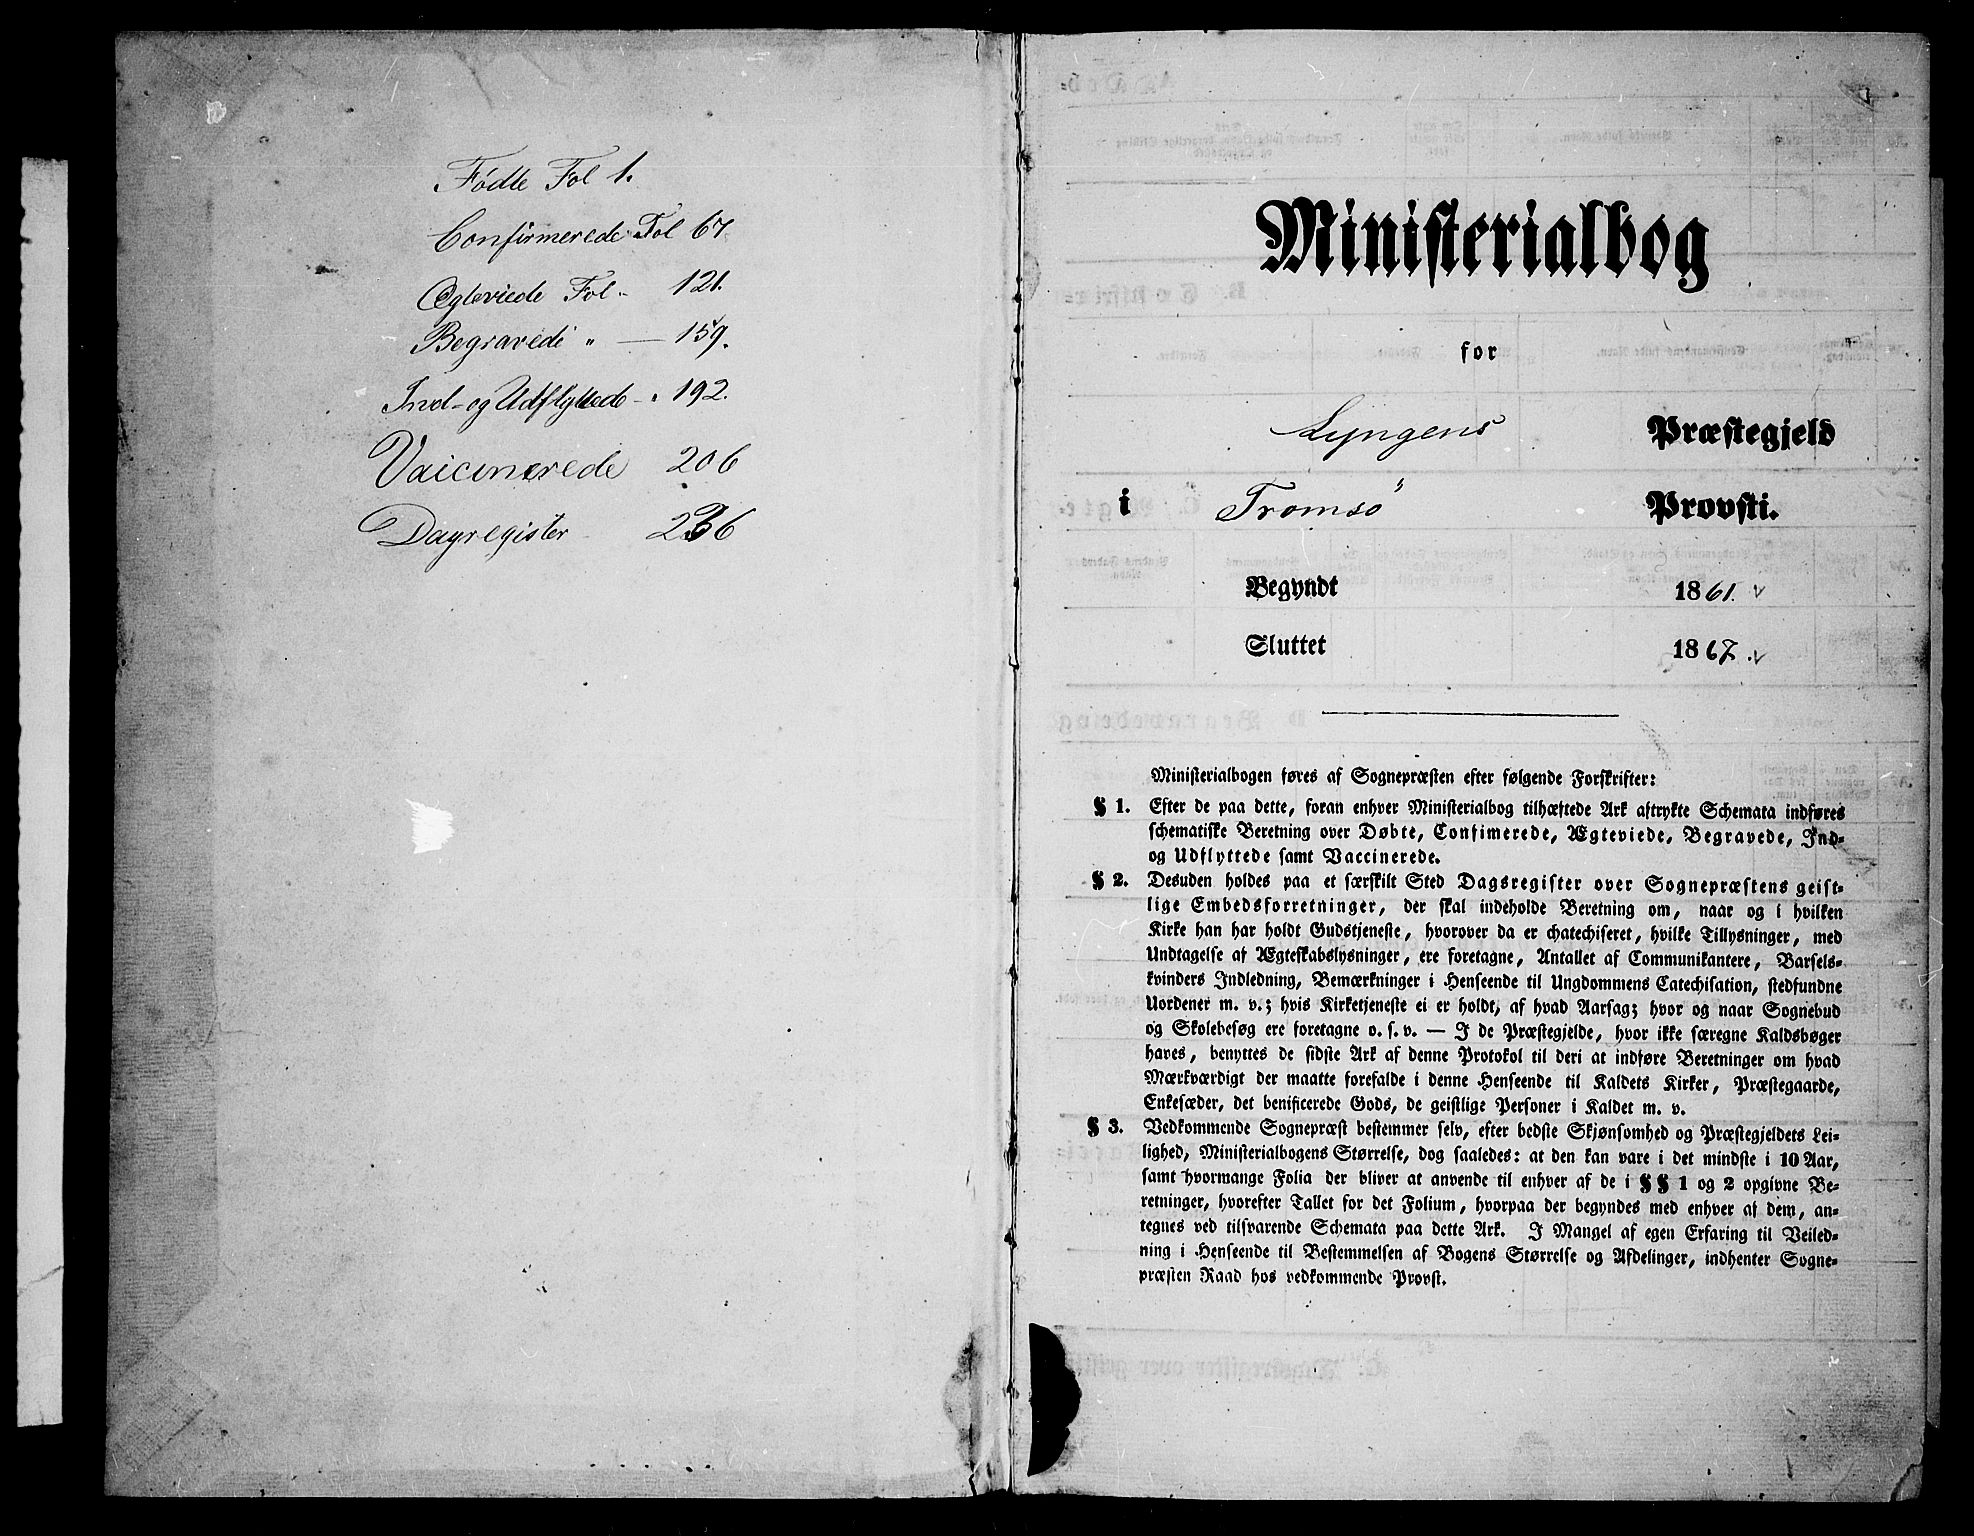 Fødte Fol 1.
Confirmerede Fol 67
Ægteviede Fol " 121.
Begravede " — 159.
Ind- og Udflyttede - " 192.
Vaicinerede 206
Dagregister 236
Ministerialbog
for
Lyngens Præstegjeld
i Tromsö Provsti.
Begyndt 1861.
Sluttet 1867.
Ministerialbogen føres af Sognepræsten efter følgende Forskrifter:
§ 1. Efter de paa dette, foran enhver Ministerialbog tilhæftede Ark aftrykte Schemata indføres
schematiske Beretning over Døbte, Confimerede, Ægteviede, Begravede, Ind-
og Udflyttede samt Vaccinerede.
§ 2. Desuden holdes paa et særskilt Sted Dagsregister over Sognepræstens geist-
lige Embedsforretninger, der skal indeholde Beretning om, naar og i hvilken
Kirke han har holdt Gudstjeneste, hvorover da er chatechiseret, hvilke Tillysninger, med
Undtagelse af Ægteskabslysninger, ere foretagne, Antallet af Communikantere, Barsels-
kvinders Indledning, Bemærkninger i Henseende til Ungdommens Catechisation, stedfundne
Uordener m. v.; hvis Kirketjeneste ei er holdt, af hvad Aarsag; hvor og naar Sognebud
og Skolebesøg ere foretagne o. s. v. — I de Præstegjelde, hvor ikke særegne Kaldsbøger
haves, benyttes de sidste Ark af denne Protokol til deri at indføre Beretninger om hvad
Mærkværdigt der maatte forefalde i denne Henseende til Kaldets Kirker, Præstegaarde,
Enkesæder, det benificerede Gods, de geistlige Personer i Kaldet m. v.
§ 3. Vedkommende Sognepræst bestemmer selv, efter bedste Skjønsomhed og Præstegjeldets Lei-
lighed, Ministerialbogens Størrelse, dog saaledes: at den kan vare i det mindste i 10 Aar,
samt hvormange Folia der bliver at anvende til enhver af de i § § 1 og 2 opgivne Be-
retninger, hvorefter Tallet for det Folium, hvorpaa der begyndes med enhver af dem, an-
tegnes ved tilsvarende Schemata paa dette Ark. I Mangel af egen Erfaring til Veiled-
ning i Henseende til Bestemmelsen af Bogens Størrelse og Afdelinger, indhenter Sogne-
præsten Raad hos vedkommende Provst.